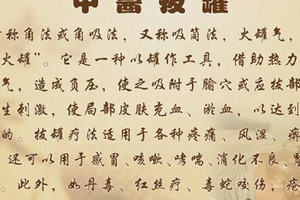 中醫拔罐
古称角法或角吸法，又称吸筒法，火罐气，
火罐”。它是一种以罐作工具，借助热力
气，造成负压，使之吸附于腧穴或应拔部
生刺激，使局部皮肤充血、淤血，以达到
的。拔罐疗法适用于各种疼痛、风湿、痹
还可以用于感冒、咳嗽、哮喘、消化不良、
。此外，如丹毒、红丝疔、毒蛇咬伤，疮